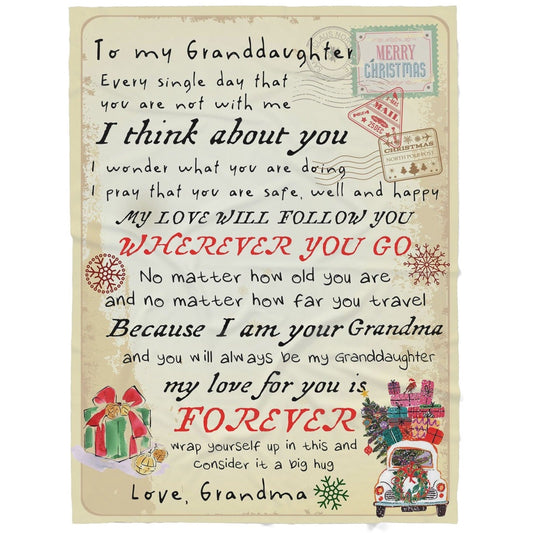 To my Granddaughter
MERRY
CHRISTMAS
Every single day that
you are not with me
MAIL
25DEC
I think about you
CHRISTMAS
NORTH POLE POST
I wonder what you are doing
I pray that you are safe, well and happy
MY LOVE WILL FOLLOW YOU
WHEREVER YOU GO
No matter how old you are
and no matter how far you travel
Because I am your Grandma
and you will always be my Granddaughter
my love for you is
FOREVER
wrap yourself up in this and
consider it a big hug
Love, Grandma